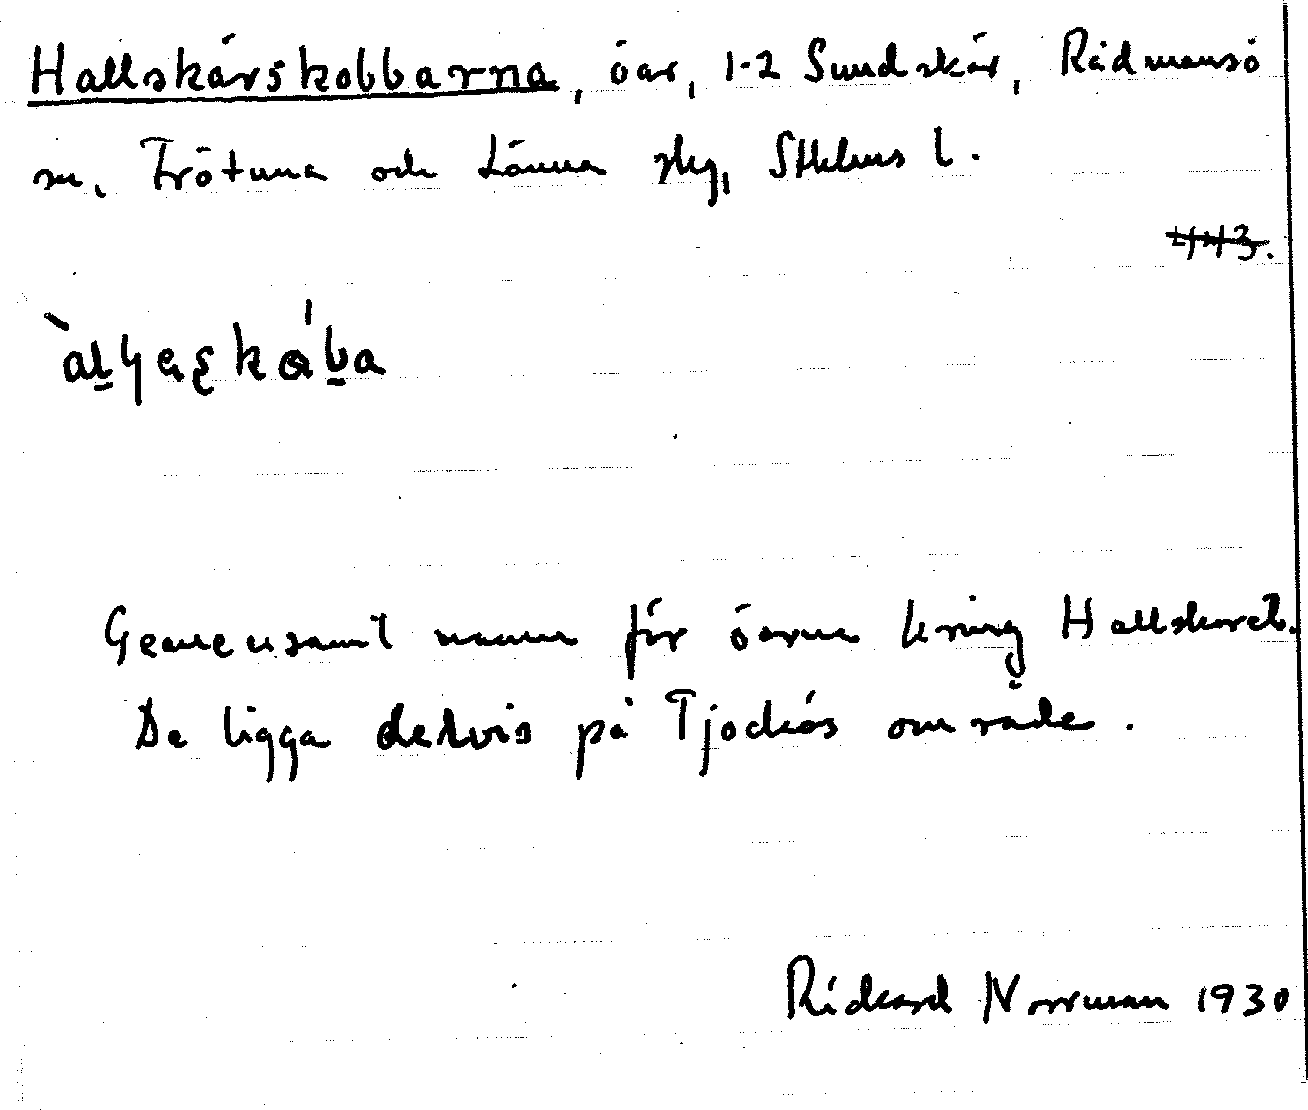 Hallskärskobbarna, öar, 1-2 Sundskär, Rådmansö
sn, Frötuna och Länna skg, Sthlms l.
Gemensamt namn för öarna kring Hallskäret.
De ligga delvis på Tjockös område.
Rickard Norrman 1930